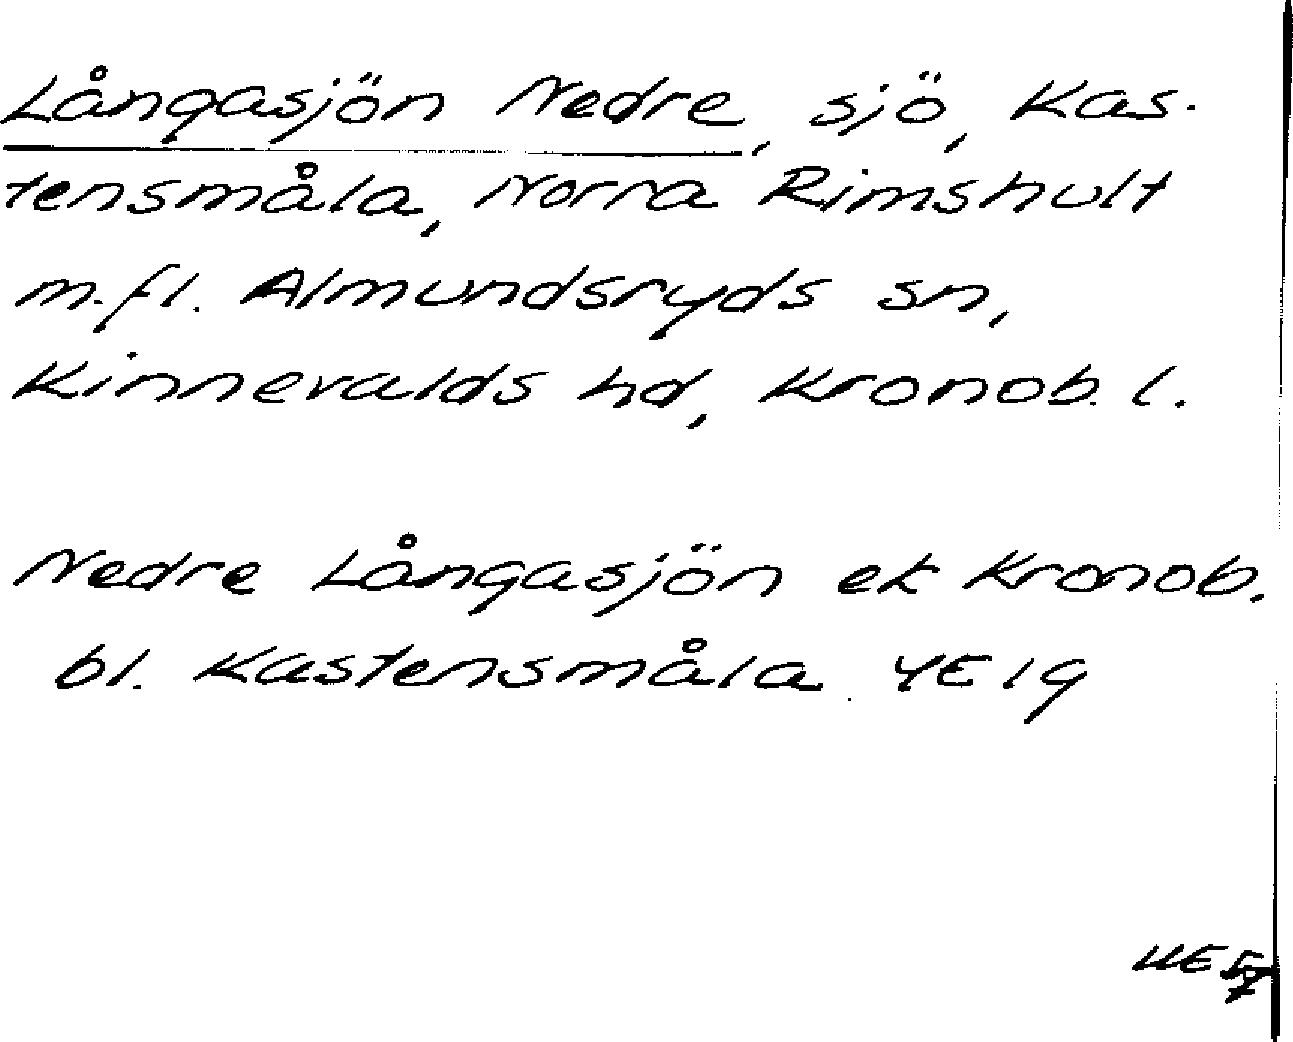 Långasjön Nedre, sjö, Kas-
tensmåla, Norra Rimshult
m.fl. Almundsryds sn,
Kinnevalds hd, Kronob. l.
Nedre Långasjön ek Kronob.
bl. Kastensmåla 4E1g